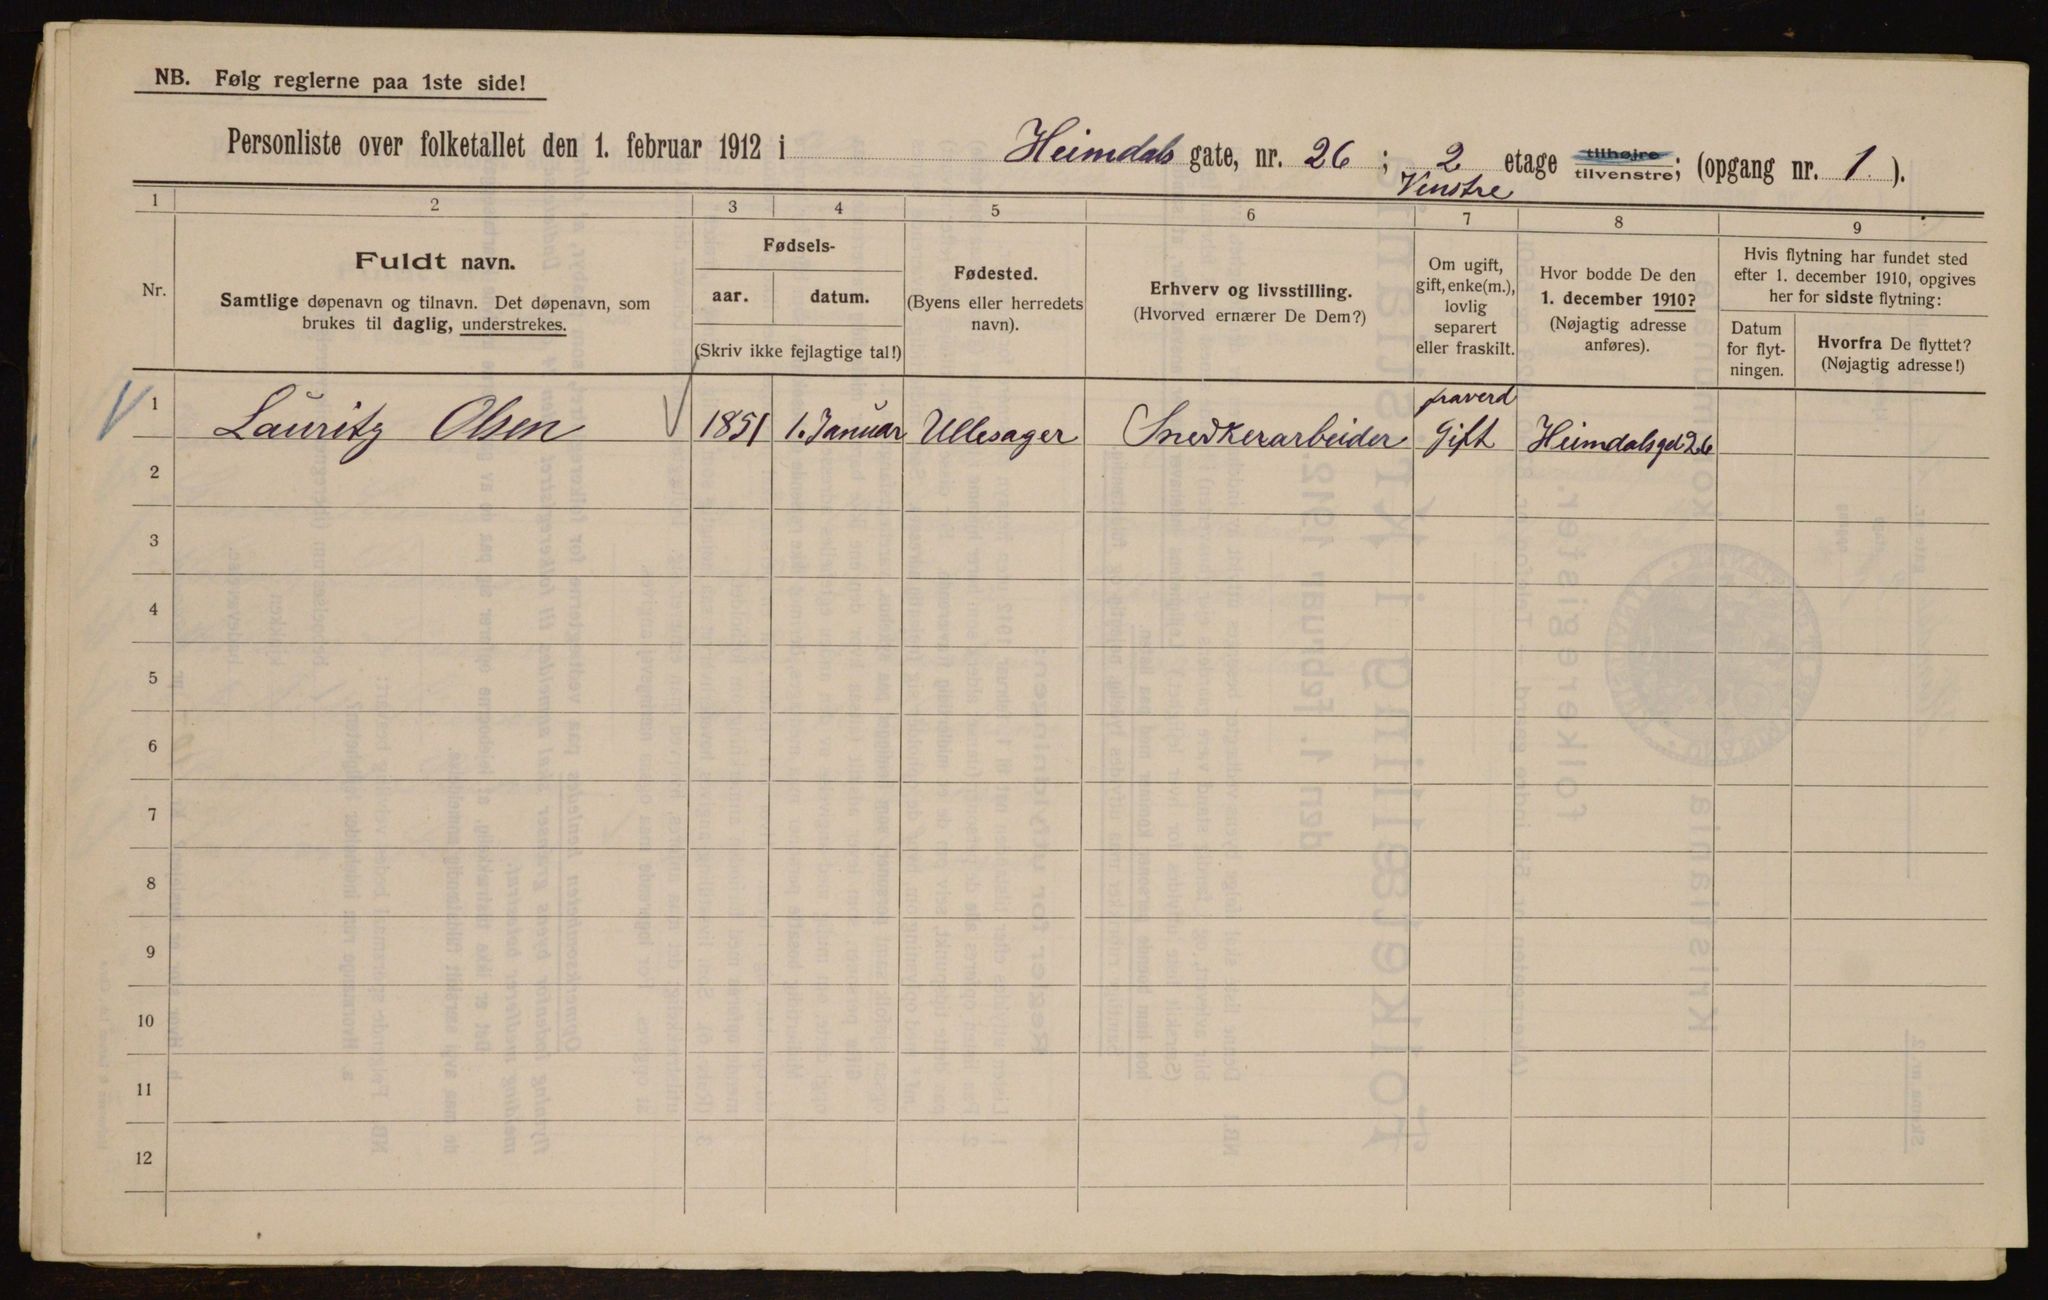 NB. Følg reglerne paa 1ste side!
Personliste over folketallet den 1. februar 1912 i Heimdals gate, nr. 26 ; 2 etage tilhøire tilvenstre; (opgang nr. 1 ).
Venstre
1 2 3 4 5 6 7 8 9
Nr.
Fuldt navn.
Samtlige døpenavn og tilnavn. Det døpenavn, som
brukes til daglig, understrekes.
Fødsels-
aar. datum.
(Skriv ikke fejlagtige tal!)
Fødested.
(Byens eller herredets
navn).
Erhverv og livsstilling.
(Hvorved ernærer De Dem?)
Om ugift,
gift, enke(m.),
lovlig
separert
eller fraskilt.
Hvor bodde De den
1. december 1910?
(Nøjagtig adresse
anføres).
Hvis flytning har fundet sted
efter 1. december 1910, opgives
her for sidste flytning:
Datum
for flyt-
ningen.
Hvorfra De flyttet?
(Nøjagtig adresse!)
1 Lauritz Olsen 1851 1. Januar Ullesager Snedkerarbeider Gift Heimdalsgd 26
2
3
4
5
6
7
8
9
10
11
12